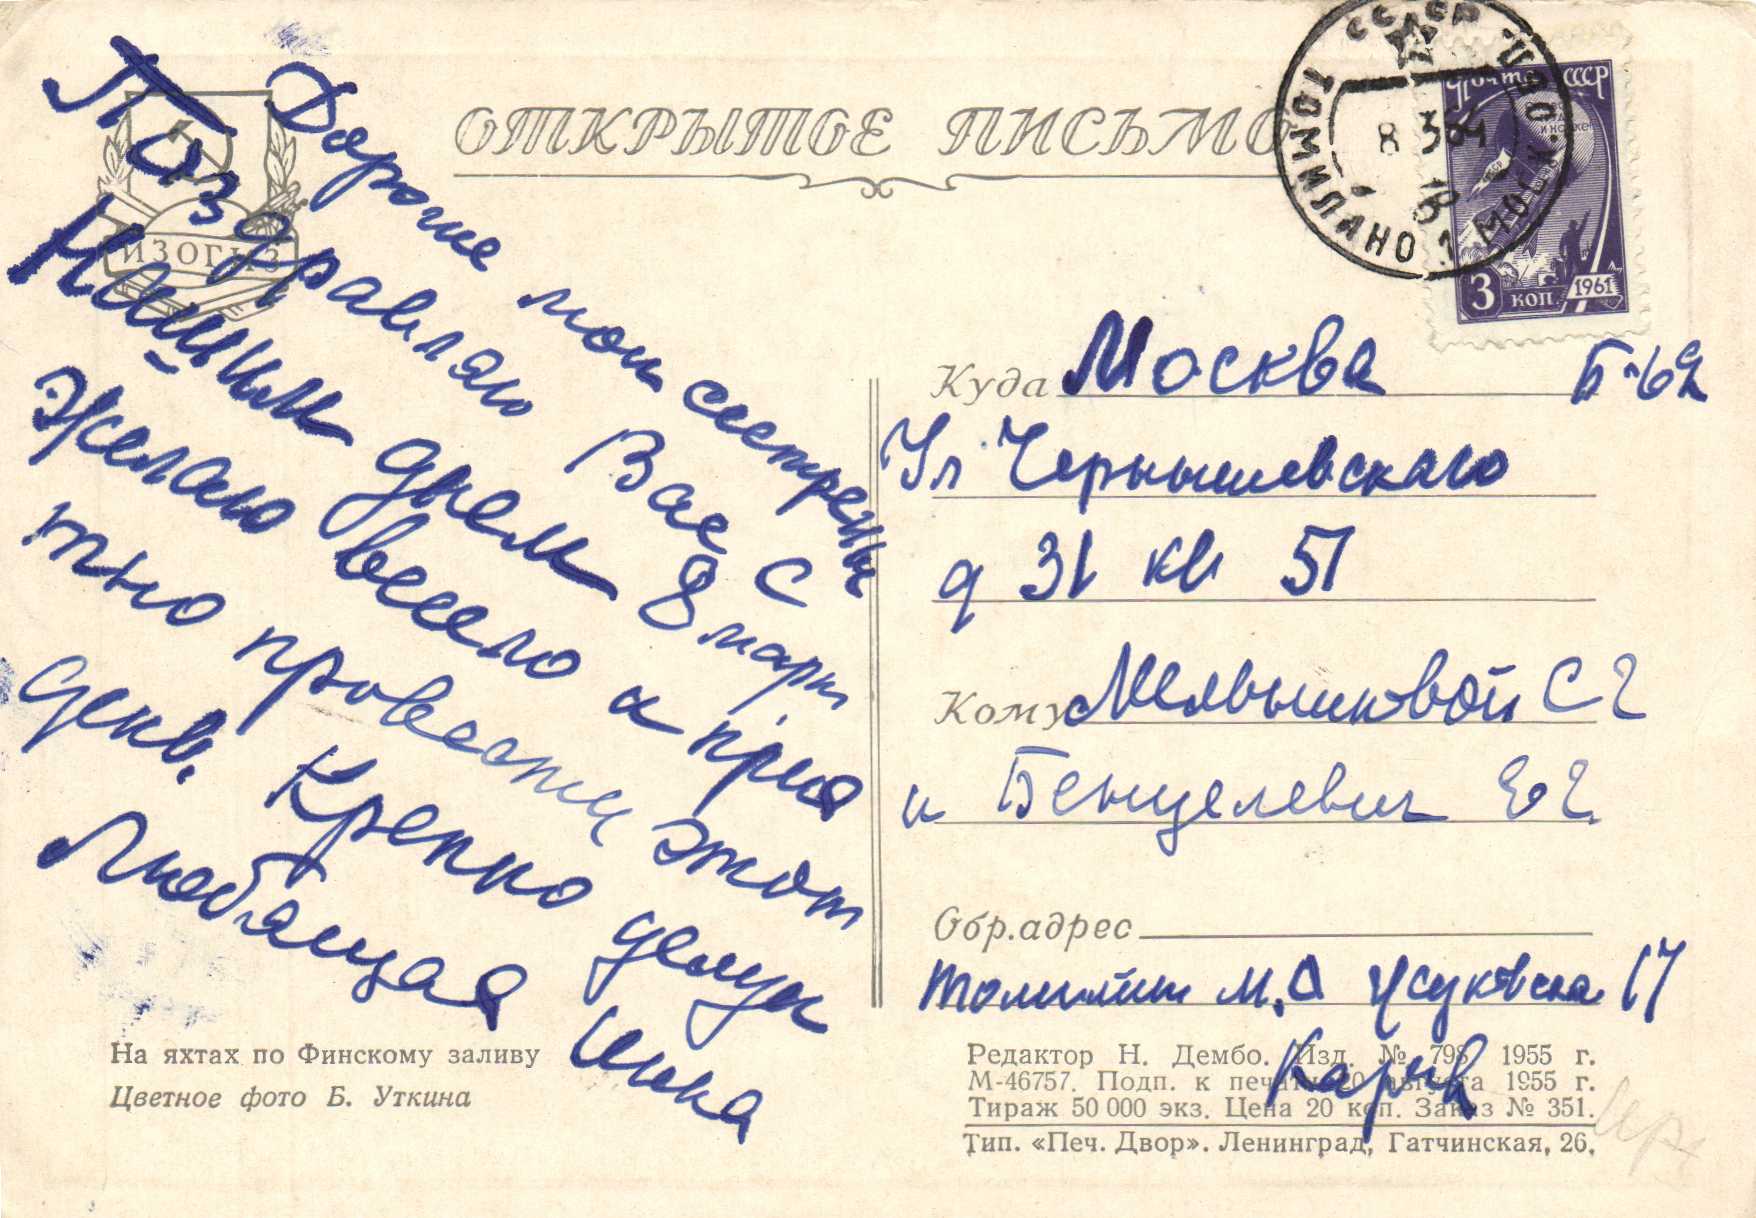 ОТКРЫТОЕ ПИСЬМО
ИЗОГИЗ
Дорогие мои сестренки
Поздравляю Вас с
Нашим днем 8 март
Желаю весело и прия
тно провести этот
день. Крепко целую
Любящая Инна
СССР
ТОМИЛИНО
МОСК. ОБЛ.
8 3 64
18
Почта СССР
3 коп. 1961
Куда Москва Б-62
Ул Чернышевскаго
д 31 кв 51
Кому Мельниковой С Г
и Бенцелевич Е Г.
Обр. адрес
М.О 17
На яхтах по Финскому заливу
Цветное фото Б. Уткина
Редактор Н. Дембо. Изд. № 798 1955 г.
М-46757. Подп. к печати 20 августа 1955 г.
Тираж 50 000 экз. Цена 20 коп. Заказ № 351.
Тип. «Печ. Двор». Ленинград, Гатчинская, 26.